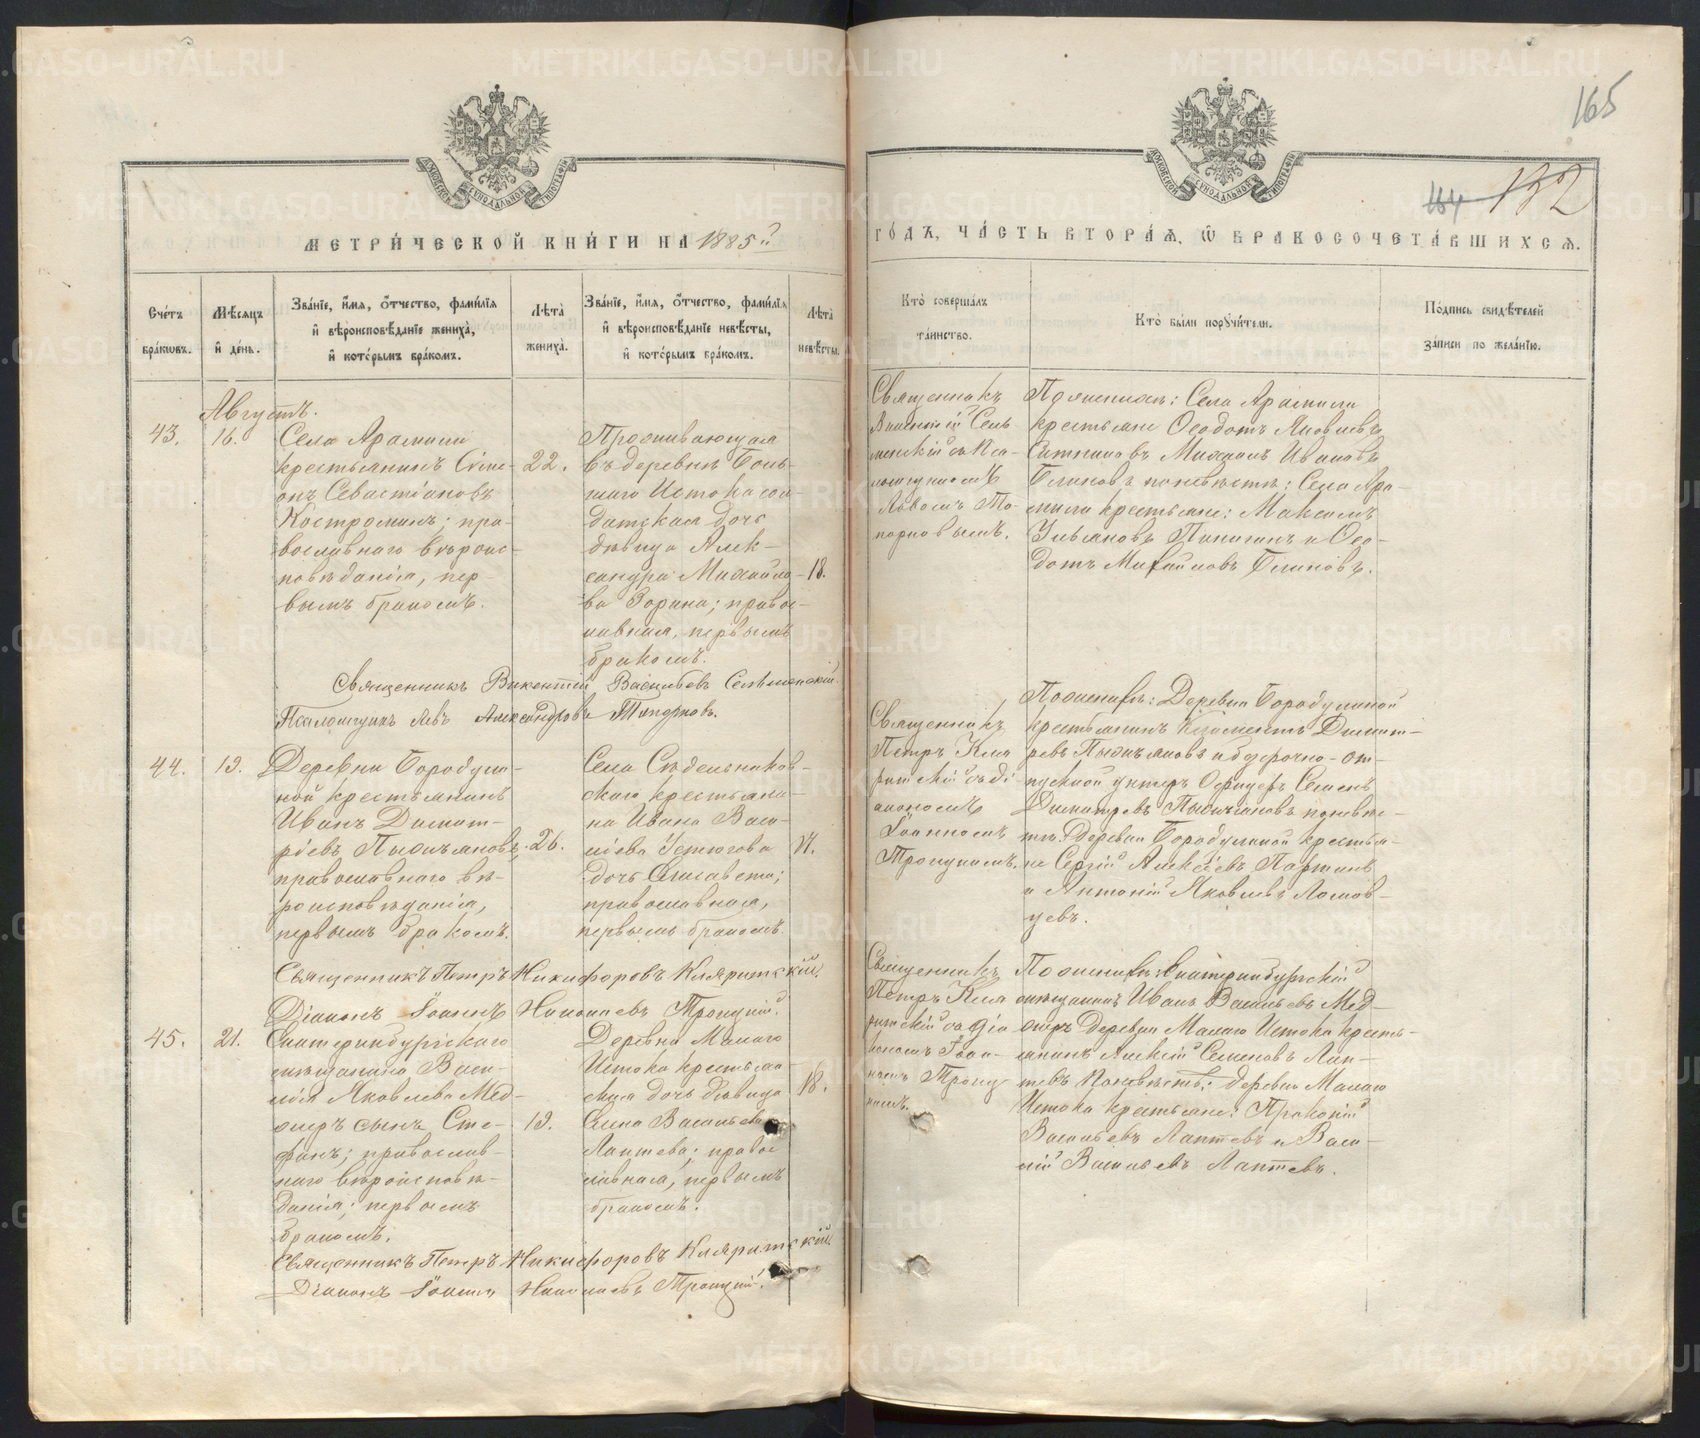 165
164 132
МЕТРИ́ЧЕСКОЙ КНИ́ГИ НА 1885
ГО́ДЪ, ЧА́СТЬ ВТОРА́Ѧ, Ѽ БРАКОСОЧЕТА́ВШИХСѦ.
Сче́тъ бра́кѡвъ.
Мѣ́сѧцъ и҆ де́нь.
Зва́нїе, и҆́мѧ, ѻ҆́тчество, фами́лїѧ
и҆ вѣроисповѣ́данїе жениха̀,
и҆ кото́рымъ бра́комъ.
Лѣта̀ жениха̀.
Зва́нїе, и҆́мѧ, ѻ҆́тчество, фами́лїѧ
и҆ вѣроисповѣ́данїе невѣ́сты,
и҆ кото́рымъ бра́комъ.
Лѣта̀ невѣ́сты.
Кто̀ соверша́лъ
та́инство.
Кто̀ бы́ли порꙋчи́тели.
По́дпись свидѣ́телей
за́писи по жела́нїю.
Августъ.
43.
16.
Села Арамили
крестьянинъ Симе-
онъ Севастіановъ
Костроминъ; пра-
вославнаго вѣроис-
повѣданія, пер-
вымъ бракомъ.
22.
Проживающая
въ деревнѣ Боль-
шаго Истока сол-
датская дочь
дѣвица Алек-
сандра Михайло-
ва Зорина; правос-
лавная, первымъ
бракомъ.
18.
Священникъ
Викентій Селъ
менскій съ Пса-
ломщикомъ
Львомъ То-
порковымъ.
Поженихѣ: Села Арамили
крестьяне Ѳеодотъ Яковлевъ
Ситниковъ Михаилъ Ивановъ
Блиновъ поневѣстѣ: Села Ара-
мили крестьяне: Максимъ
Ульяновъ и Ѳео-
дотъ Михайловъ Блиновъ.
Священникъ Викентій Васильевъ Селѣменскій
Псаломщикъ Левъ Александровъ Топорковъ.
44.
19.
Деревни Бородули-
ной крестьянинъ
Иванъ Димит-
ріевъ
православнаго вѣ-
роисповѣданія,
первымъ бракомъ.
26.
Села Сѣдельников-
скаго крестьяни-
на Ивана Васи-
льева Устюгова
дочь Елисавета;
православная,
первымъ бракомъ.
Священникъ
Петръ Кля
ритскій съ Ді
акономъ
Іоанномъ
Троицкимъ.
Поженихѣ: Деревни Бородулиной
крестьянинъ Климентъ Димит-
ревъ и безсрочно-от-
пускной унтеръ Офицеръ Семенъ
Димитревъ поневѣс-
тѣ: Деревни Бородулиной крестья-
не Сергій Алексѣевъ
и Антоній Яковлевъ Ломов-
цевъ.
Священникъ Петръ Никифоровъ Кляритскій.
Діаконъ Іоаннъ Николаевъ Троицкій.
45.
21.
Екатеринбургскаго
мѣщанина Васи-
лія Яковлева Мед-
сынъ Сте-
фанъ; православ-
наго вѣроисповѣ-
данія; первымъ
бракомъ.
19.
Деревни Малаго
Истока крестьян-
ская дочь дѣвица
Елена Васильева
Лаптева; правос
лавная, первымъ
бракомъ.
18.
Священникъ
Петръ Кля
ритскій съ Діа
кономъ Іоан-
номъ Троиц-
кимъ.
Поженихѣ: Екатеринбургскій
мѣщанинъ Иванъ Васильевъ
Деревни Малаго Истока кресть-
янинъ Алексѣй Семеновъ Лап-
тевъ Поневѣстѣ: Деревни Малаго
Истока крестьяне: Прокопій
Васильевъ Лаптевъ и Васи-
лій Васильевъ Лаптевъ.
Священникъ Петръ Никифоровъ Кляритскій
Діаконъ Іоаннъ Николаевъ Троицкій.
METRIKI.GASO-URAL.RU